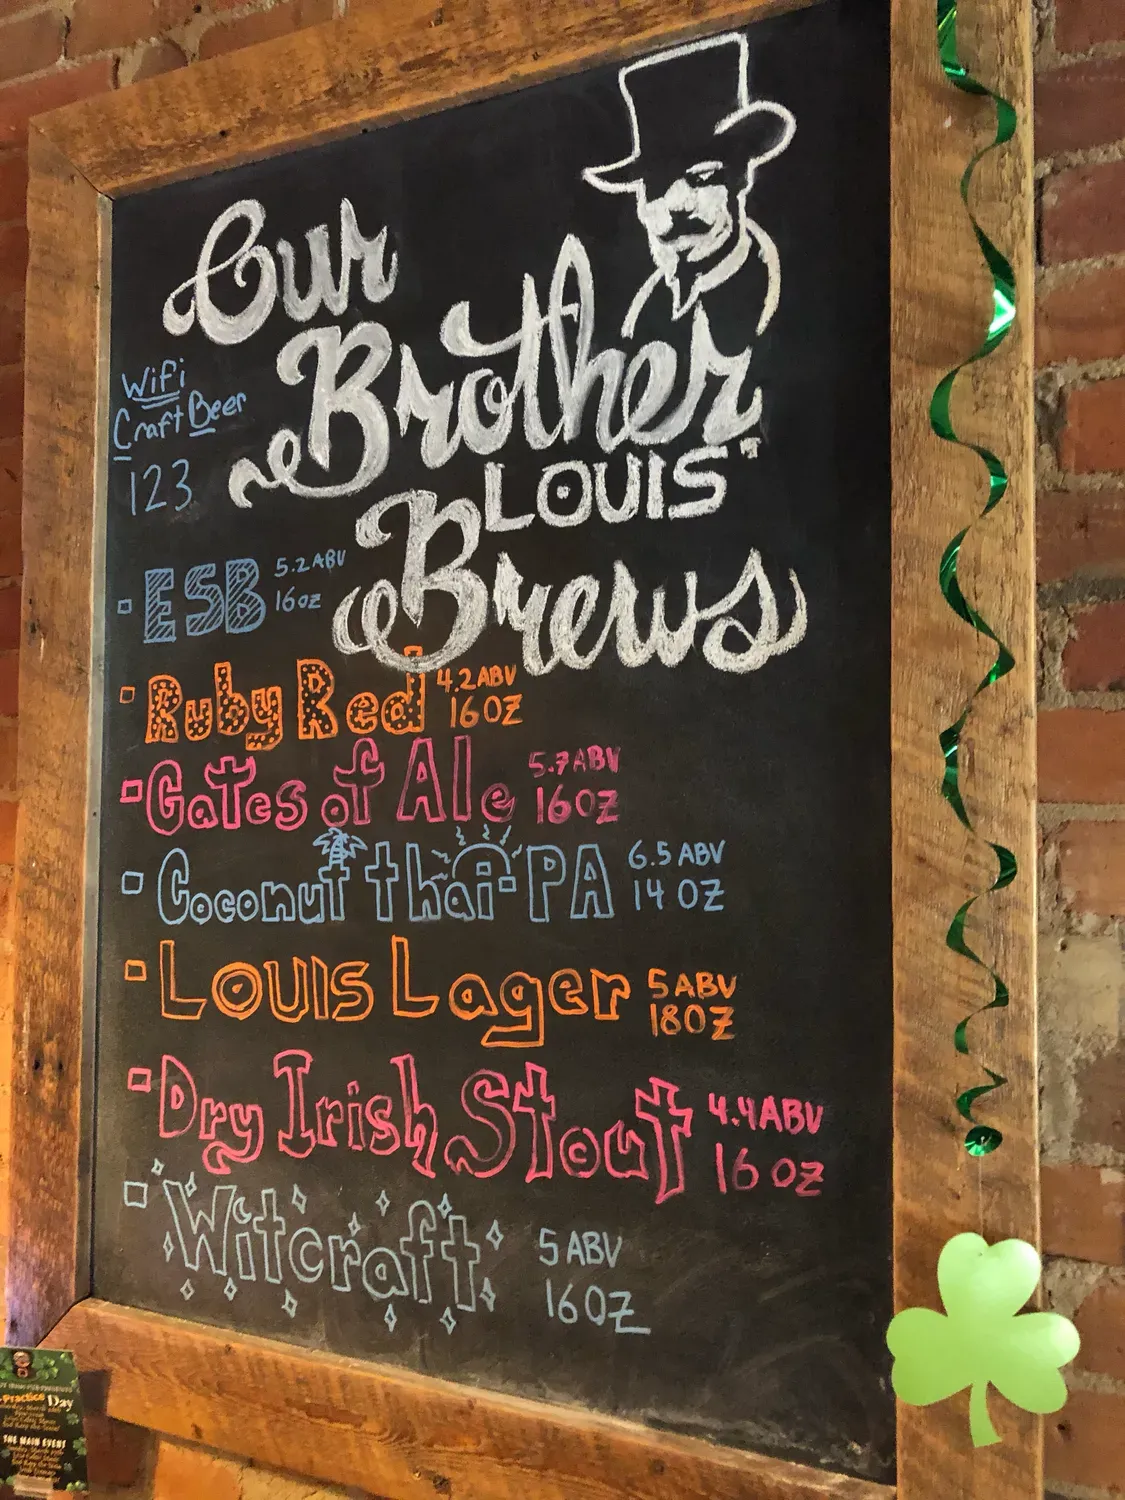 Our
Brother
"LOUIS"
Brews
WiFi
Craft Beer
123
ESB 5.2 ABV
16oz
Ruby Red 4.2 ABV
16 OZ
Gates of Ale 5.7 ABV
16 OZ
Coconut thai-PA 6.5 ABV
14 OZ
LOUIS Lager 5 ABV
18 OZ
Dry Irish Stout 4.4 ABV
16 OZ
Witcraft 5 ABV
16 OZ
Practice Day
THE MAIN EVENT